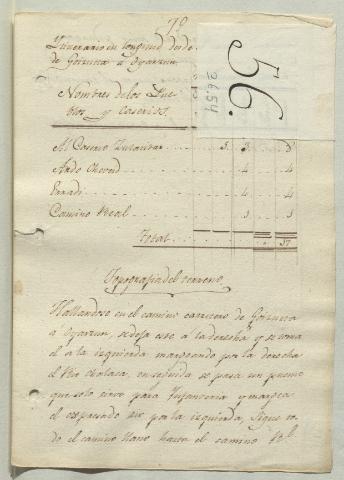 70
Itinerario en longitud desde
de Goizueta a Oyarzun
56.
26.54
Nombres de los Pue-
blos y Caserios.
Al Caserio ..... 3. 3 ... 3
..... 4 ... 4
Erradi ..... 4 ... 4
Camino Real .....
Total ..... 17
Topografia del terreno
Hallandose en el camino carretero de Goizueta
á Oyarzun, se deja este á la derecha y se toma
el á la izquierda margeando por la derecha
el Rio en seguida se pasa un puente
que solo sirve para Infanteria y margea
el expresado rio por la izquierda, sigue to-
do el camino llano hasta el camino Rl.